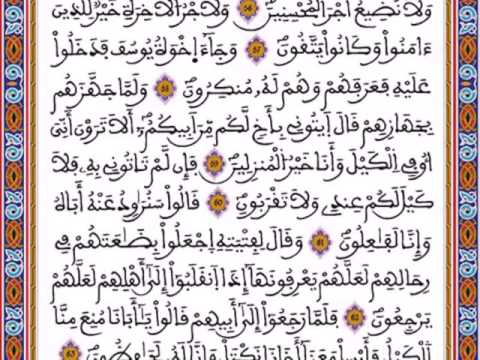 وَلَا نُضِيعُ أَجْرَ اَلْمُحْسِنِينَ 56 وَلَأَجْرُ اُلَاخِرَةِ خَيْرٌ لِّلذِينَ
ءَامَنُواْ وَكَانُواْ يَتَّقُونَ 57 وَجَآءَ اِخْوَةُ يُوسُفَ فَدَخَلُواْ
عَلَيْهِ فَعَرَفَهُمْ وَهُمْ لَهُۥ مُنكِرُونَ 58 وَلَمَّا جَهَّزَهُم
بِجَهَازِهِمْ قَالَ اَيتُونِي بِأَخٍ لَّكُم مِّنَ اَبِيكُمُۥٓ أَلَا تَرَوْنَ أَنِّيَ
أُوفِي اِلْكَيْلَ وَأَنَا خَيْرُ اُلْمُنزِلِينَ 59 فَإِن لَّمْ تَاتُونِي بِهِۦ فَلَا
كَيْلَ لَكُمْ عِندِي وَلَا تَقْرَبُونِ 60 قَالُواْ سَنُرَاوِدُ عَنْهُ أَبَاهُ
وَإِنَّا لَفَاعِلُونَ 61 وَقَالَ لِفِتْيَتِهِ اِجْعَلُواْ بِضَاعَتَهُمْ فِي
رِحَالِهِمْ لَعَلَّهُمْ يَعْرِفُونَهَآ إِذَا اَنقَلَبُوٓاْ إِلَىٰٓ أَهْلِهِمْ لَعَلَّهُمْ
يَرْجِعُونَ 62 فَلَمَّا رَجَعُوٓاْ إِلَىٰٓ أَبِيهِمْ قَالُواْ يَٰٓأَبَانَا مُنِعَ مِنَّا
اَلْكَيْلُ فَأَرْسِلْ مَعَنَآ أَخَانَا نَكْتَلْ وَإِنَّا لَهُۥ لَحَافِظُونَ 63